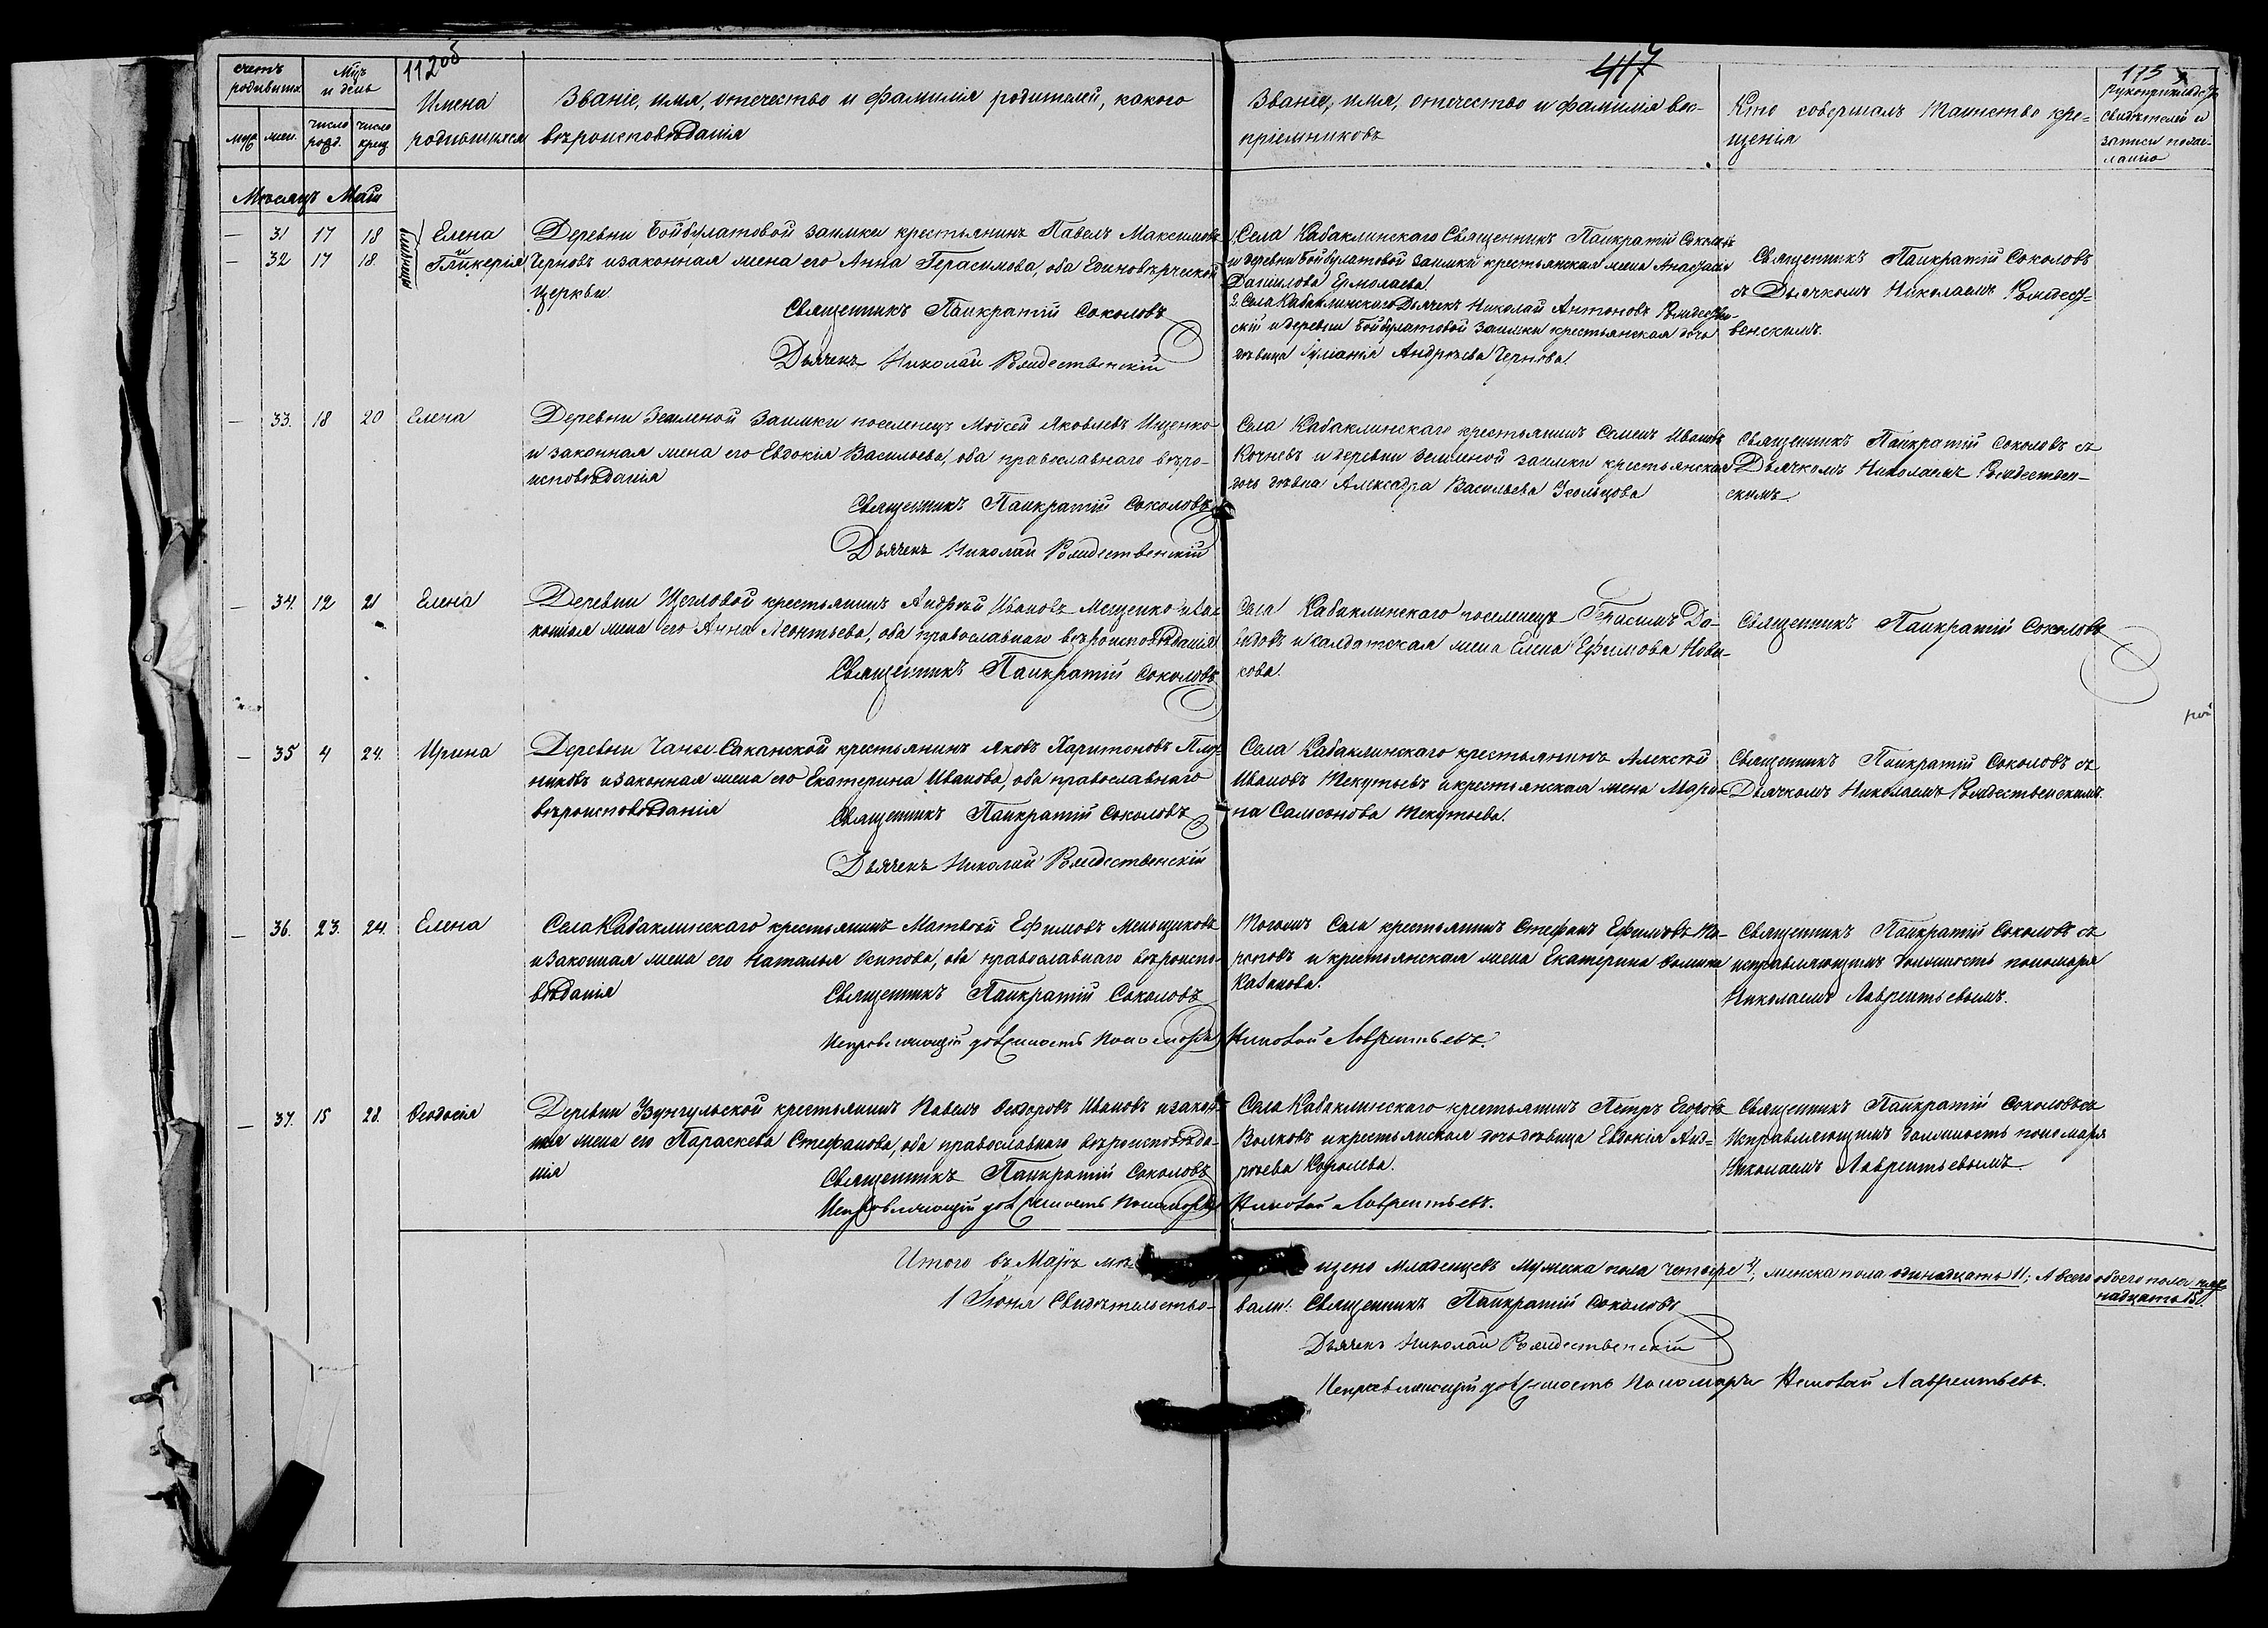 счетъ родившихъ
Мцъ и день
11203
Имена родившихся
муж. жен. число рожд. число крещ
Званіе, имя, отечество и фамилія родителей, какого
вѣроисповѣданія
417
Званіе, имя, отечество и фамилія вос-
пріемниковъ
Кто совершалъ таинство кре-
щенія
115
Рукоприкладст.
свидѣтелей и
записи по же-
ланію
Мѣсяцъ Май
— 31 17 18 Елена
— 32 17 18. и Гликерія
близнецы
Деревни Бойбулатовой заимки крестьянинъ Павелъ Максимовъ
Черновъ и законная жена его Анна Герасимова, оба Единовѣрческой
Церкви
Священникъ Панкратій Соколовъ
Дьячекъ Николай Рождественскій
1, Села Кабаклинскаго Священникъ Панкратій Соколовъ
и деревни Бойбулатовой заимки крестьянская жена Анастасія
Данилова Ермолаева
2, Села Кабаклинскаго Дьячекъ Николай Антоновъ Рождествен-
скій и деревни Бойбулатовой заимки крестьянская дочь
дѣвица Іуліанія Андреева Чернова.
Священникъ Панкратій Соколовъ
съ Дьячкомъ Николаемъ Рождест-
венскимъ.
— 33. 18 20 Елена
Деревни Земляной Заимки поселенецъ Мойсей Яковлевъ Ищенко
и законная жена его Евдокія Васильева, оба православнаго вѣро-
исповѣданія
Священникъ Панкратій Соколовъ
Дьячекъ Николай Рождественскій
Села Кабаклинскаго крестьянинъ Семенъ Ивановъ
Кочневъ и деревни Земляной заимки крестьянская
дочь дѣвка Александра Васильева Усольцова
Священникъ Панкратій Соколовъ съ
Дьячкомъ Николаемъ Рождествен-
скимъ
— 34. 12 21 Елена
Деревни Щегловой крестьянинъ Андрей Ивановъ Мещенко и за-
конная жена его Анна Леонтьева, оба православнаго вѣроисповѣданія
Священникъ Панкратій Соколовъ
Села Кабаклинскаго поселенецъ Герасимъ До-
видовъ и салдатская жена Елена Ефимова Нови-
кова.
Священникъ Панкратій Соколовъ
— 35 4 24. Ирина
Деревни Чане-Саканской крестьянинъ Яковъ Харитоновъ Плот-
никовъ и законная жена его Екатерина Иванова, оба православнаго
вѣроисповѣданія
Священникъ Панкратій Соколовъ
Дьячекъ Николай Рождественскій
Села Кабаклинскаго крестьянинъ Алексѣй
Ивановъ Текутьевъ и крестьянская жена Мари-
на Самсонова Текутьева.
Священникъ Панкратій Соколовъ съ
Дьячкомъ Николаемъ Рождественскимъ.
— 36. 23. 24. Елена
Села Кабаклинскаго крестьянинъ Матвѣй Ефимовъ Меньщиковъ
и законная жена его Наталья Осипова, оба православнаго вѣроиспо-
вѣданія
Священникъ Панкратій Соколовъ
Исправляющій должность Пономоря Николай Лаврентьевъ.
Тогожъ Села крестьянинъ Стефанъ Ефимовъ
и крестьянская жена Екатерина Фомина
Казанова.
Священникъ Панкратій Соколовъ съ
исправляющимъ должность пономаря
Николаемъ Лаврентьевымъ.
— 37. 15 28. Ѳеодосія
Деревни Узунгульской крестьянинъ Павелъ Ѳедоровъ Ивановъ и закон-
ная жена его Параскева Стефанова, оба православнаго вѣроисповѣда-
нія
Священникъ Панкратій Соколовъ
Исправляющій должность Пономоря Николай Лаврентьевъ.
Села Кабаклинскаго крестьянинъ Петръ Егоровъ
Волковъ и крестьянская дочь дѣвица Евдокія Анд-
реева Королева.
Священникъ Панкратій Соколовъ съ
Исправляющимъ должность пономаря
Николаемъ Лаврентьевымъ
Итого въ Маѣ щено младенцевъ мужеска пола четыре 4, женска пола одинадцать 11; А всего обоего пола пят-
надцать 15.
1 Іюня Свидѣтельство- вали: Священникъ Панкратій Соколовъ
Дьячекъ Николай Рождественскій
Исправляющій должность Пономаря Николай Лаврентьевъ.